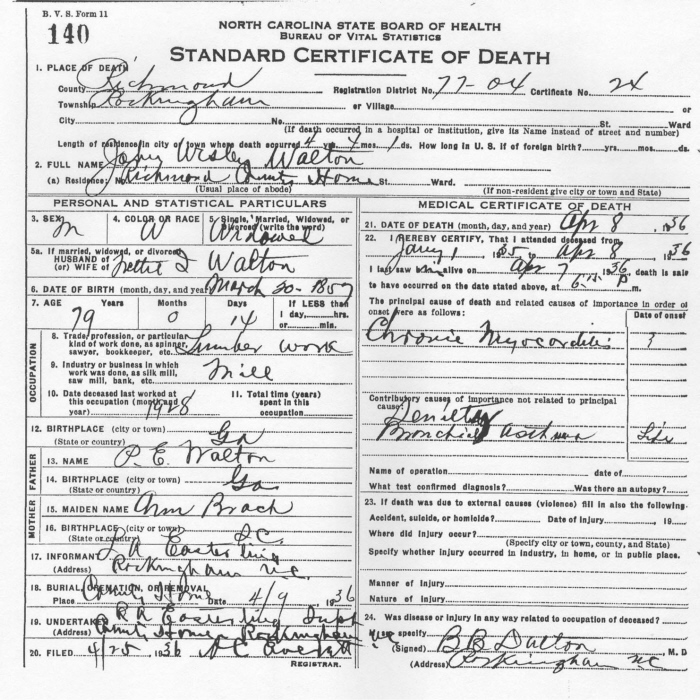 B. V. S. Form 11
140
NORTH CAROLINA STATE BOARD OF HEALTH
BUREAU OF VITAL STATISTICS
STANDARD CERTIFICATE OF DEATH
1. PLACE OF DEATH
County Richmond Registration District No. 77-04 Certificate No. 24
Township Rockingham or Village or
City No. St. Ward
(If death occurred in a hospital or institution, give its Name instead of street and number)
Length of residence in city or town where death occurred 4 yrs. 4 mos. 1 ds. How long in U. S. if of foreign birth? yrs. mos. ds.
2. FULL NAME Wesley Walton
(a) Residence: No. Richmond County Home St. Ward.
(Usual place of abode) (If non-resident give city or town and State)
PERSONAL AND STATISTICAL PARTICULARS
3. SEX M 4. COLOR OR RACE W 5. Single, Married, Widowed, or Divorced (write the word) Widowed
5a. If married, widowed, or divorced
HUSBAND of
(or) WIFE of Walton
6. DATE OF BIRTH (month, day, and year) March 20-1857
7. AGE Years Months Days If LESS than
79 0 14 1 day, hrs.
or min.
OCCUPATION
8. Trade, profession, or particular
kind of work done, as spinner,
sawyer, bookkeeper, etc. Lumber work
9. Industry or business in which
work was done, as silk mill,
saw mill, bank, etc. Mill
10. Date deceased last worked at
this occupation (month and
year) 1928
11. Total time (years)
spent in this
occupation
12. BIRTHPLACE (city or town)
(State or country) Ga
FATHER
13. NAME P. E. Walton
14. BIRTHPLACE (city or town) Ga
(State or country)
MOTHER
15. MAIDEN NAME Ann Brach
16. BIRTHPLACE (city or town)
(State or country) S.C.
17. INFORMANT Easterling
(Address) Rockingham N.C.
18. BURIAL, CREMATION, OR REMOVAL
Place County Home Date 4/9 1936
19. UNDERTAKER R A Easterling Supt
(Address) County Home Rockingham
20. FILED 4/25 1936
REGISTRAR.
MEDICAL CERTIFICATE OF DEATH
21. DATE OF DEATH (month, day, and year) Apr 8, 1936
22. I HEREBY CERTIFY, That I attended deceased from
Jany 1 1935 to Apr 8 1936
I last saw him alive on Apr 7 1936, death is said
to have occurred on the date stated above, at 6 P m.
The principal cause of death and related causes of importance in order of
onset were as follows: Date of onset
Chronic Myocarditis ?
Contributory causes of importance not related to principal
cause: Senility
Bronchial Asthma Life
Name of operation date of
What test confirmed diagnosis? Was there an autopsy?
23. If death was due to external causes (violence) fill in also the following:
Accident, suicide, or homicide? Date of Injury, 19
Where did injury occur?
(Specify city or town, county, and State)
Specify whether injury occurred in industry, in home, or in public place.
Manner of Injury
Nature of Injury
24. Was disease or injury in any way related to occupation of deceased?
specify
(Signed) B B Dalton, M. D
(Address) Rockingham NC